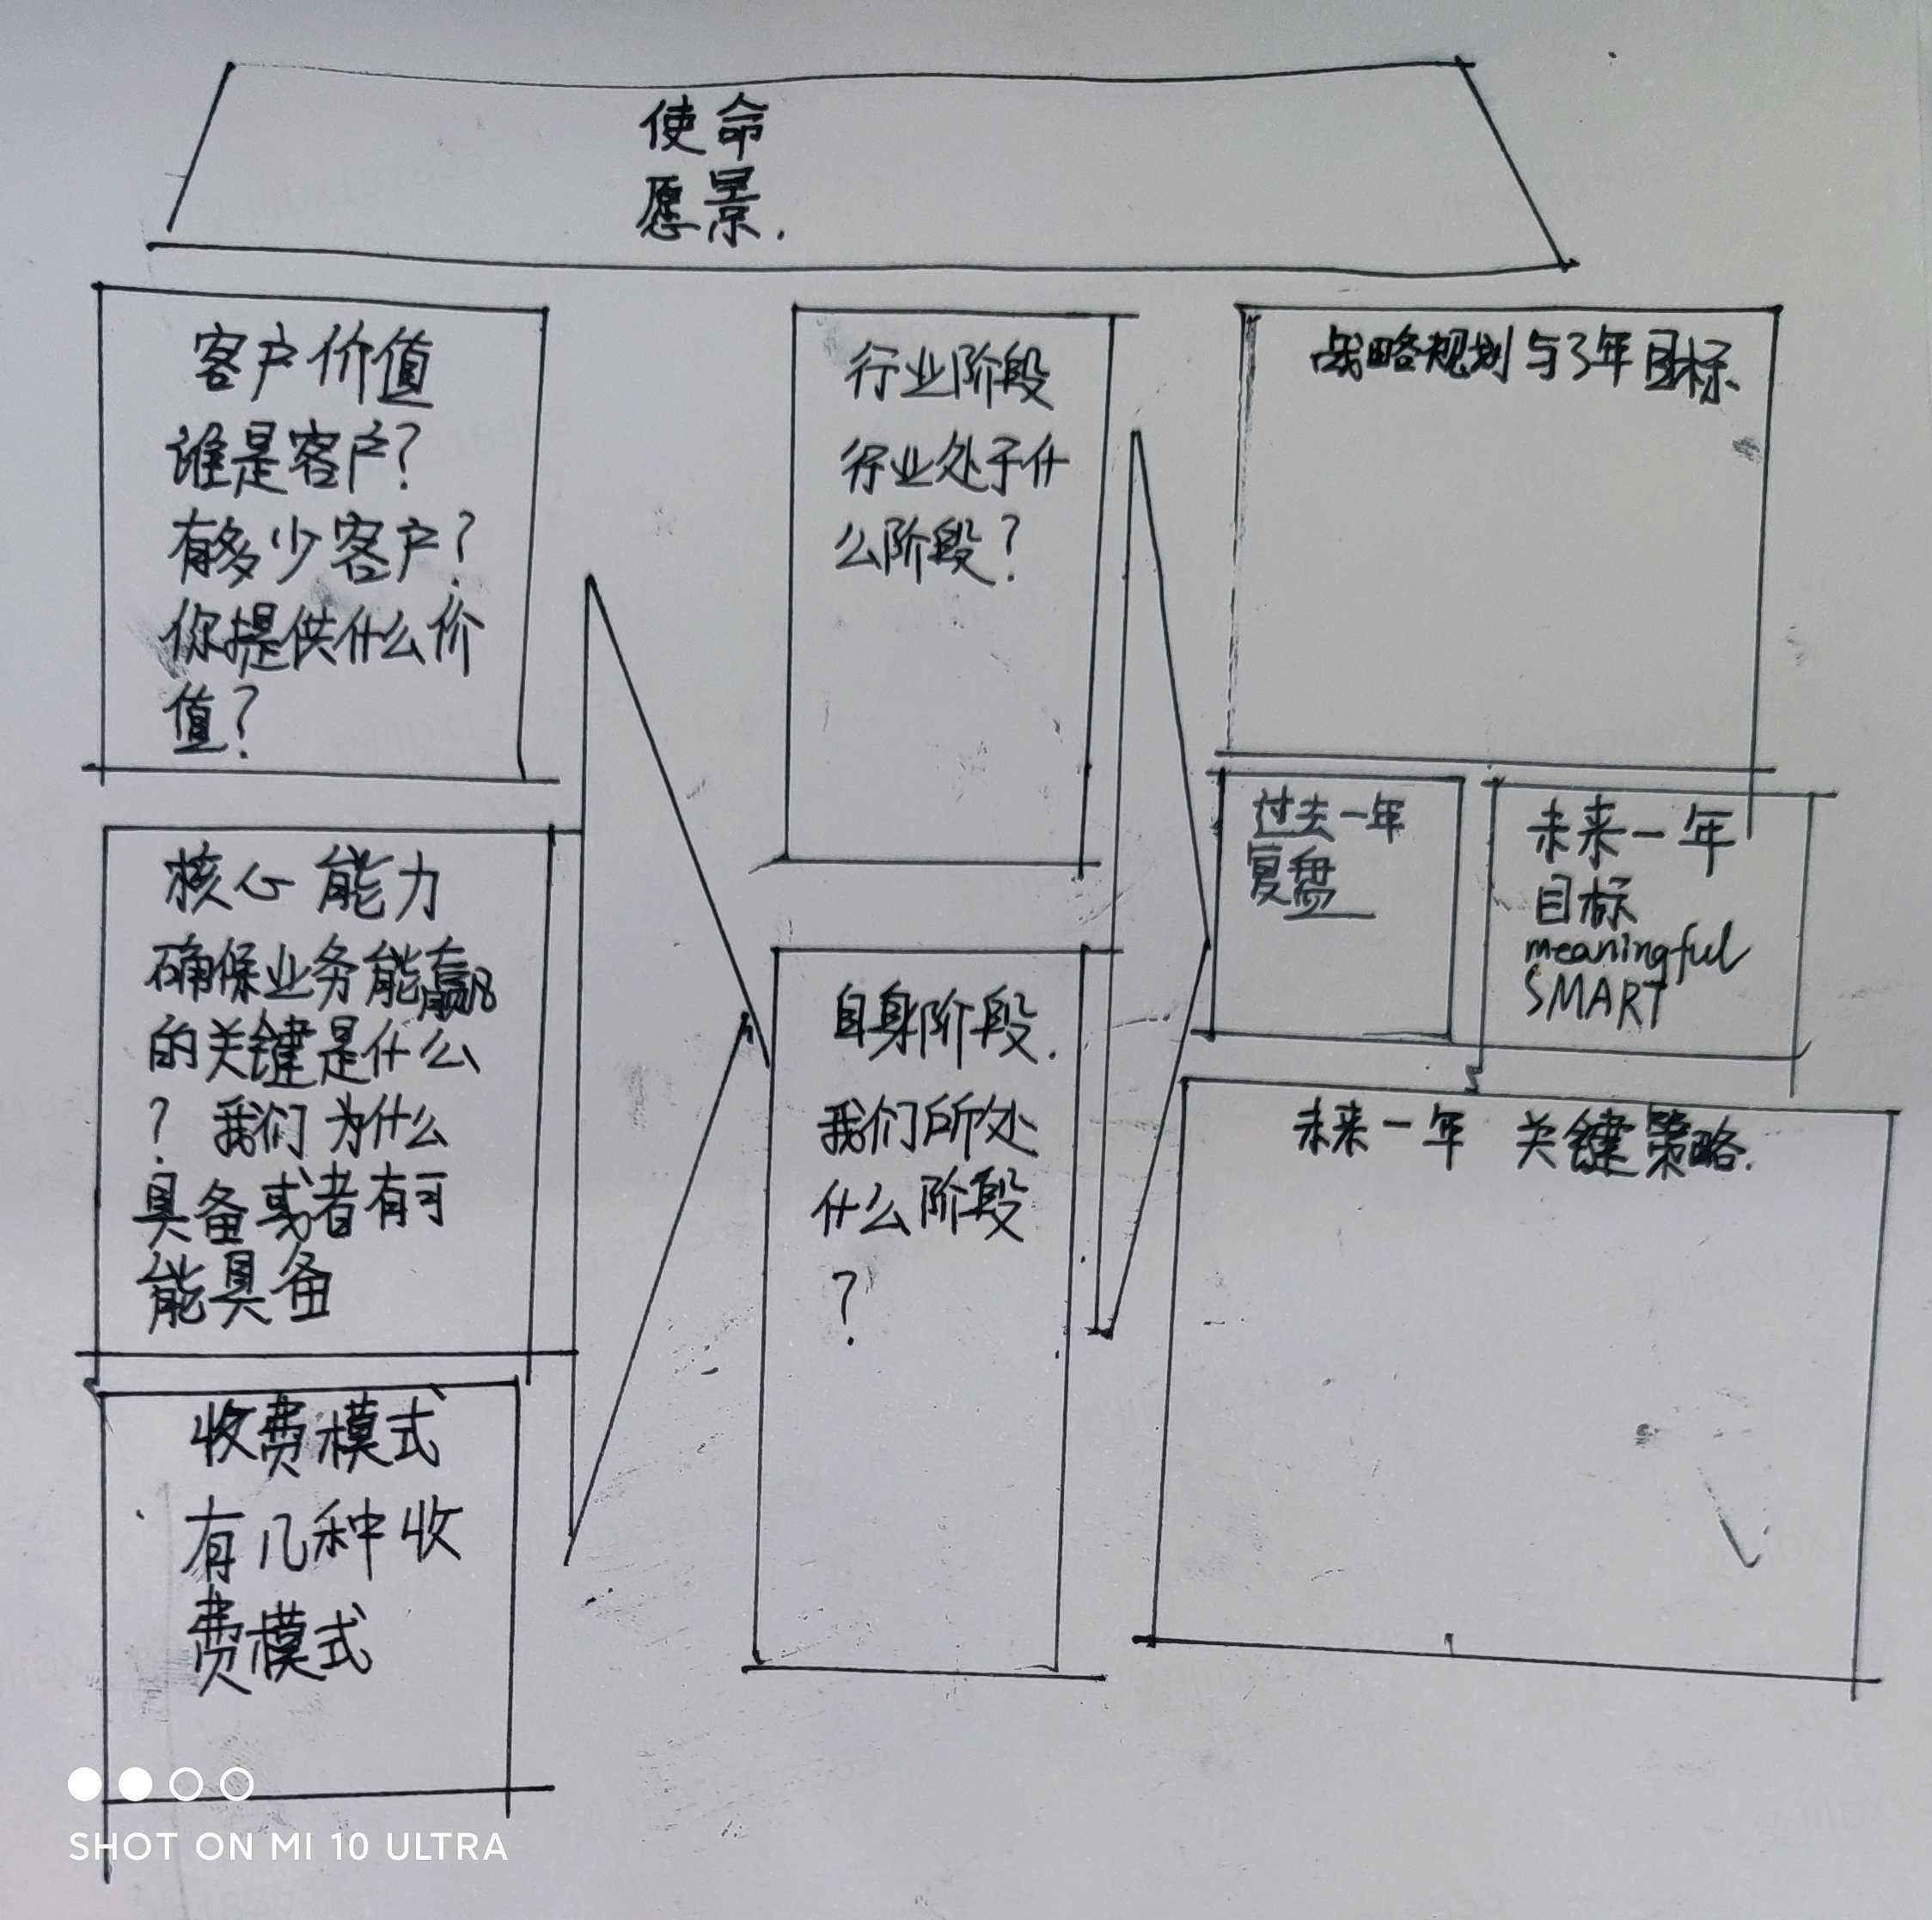 使命
愿景.
客户价值
谁是客户?
有多少客户?
你提供什么价
值?
核心能力
确保业务能赢
的关键是什么
? 我们为什么
具备或者有可
能具备
收费模式
有几种收
费模式
行业阶段
行业处于什
么阶段?
自身阶段.
我们所处
什么阶段
?
战略规划与3年目标
过去一年
复盘
未来一年
目标
meaningful
SMART
未来一年 关键策略.
SHOT ON MI 10 ULTRA